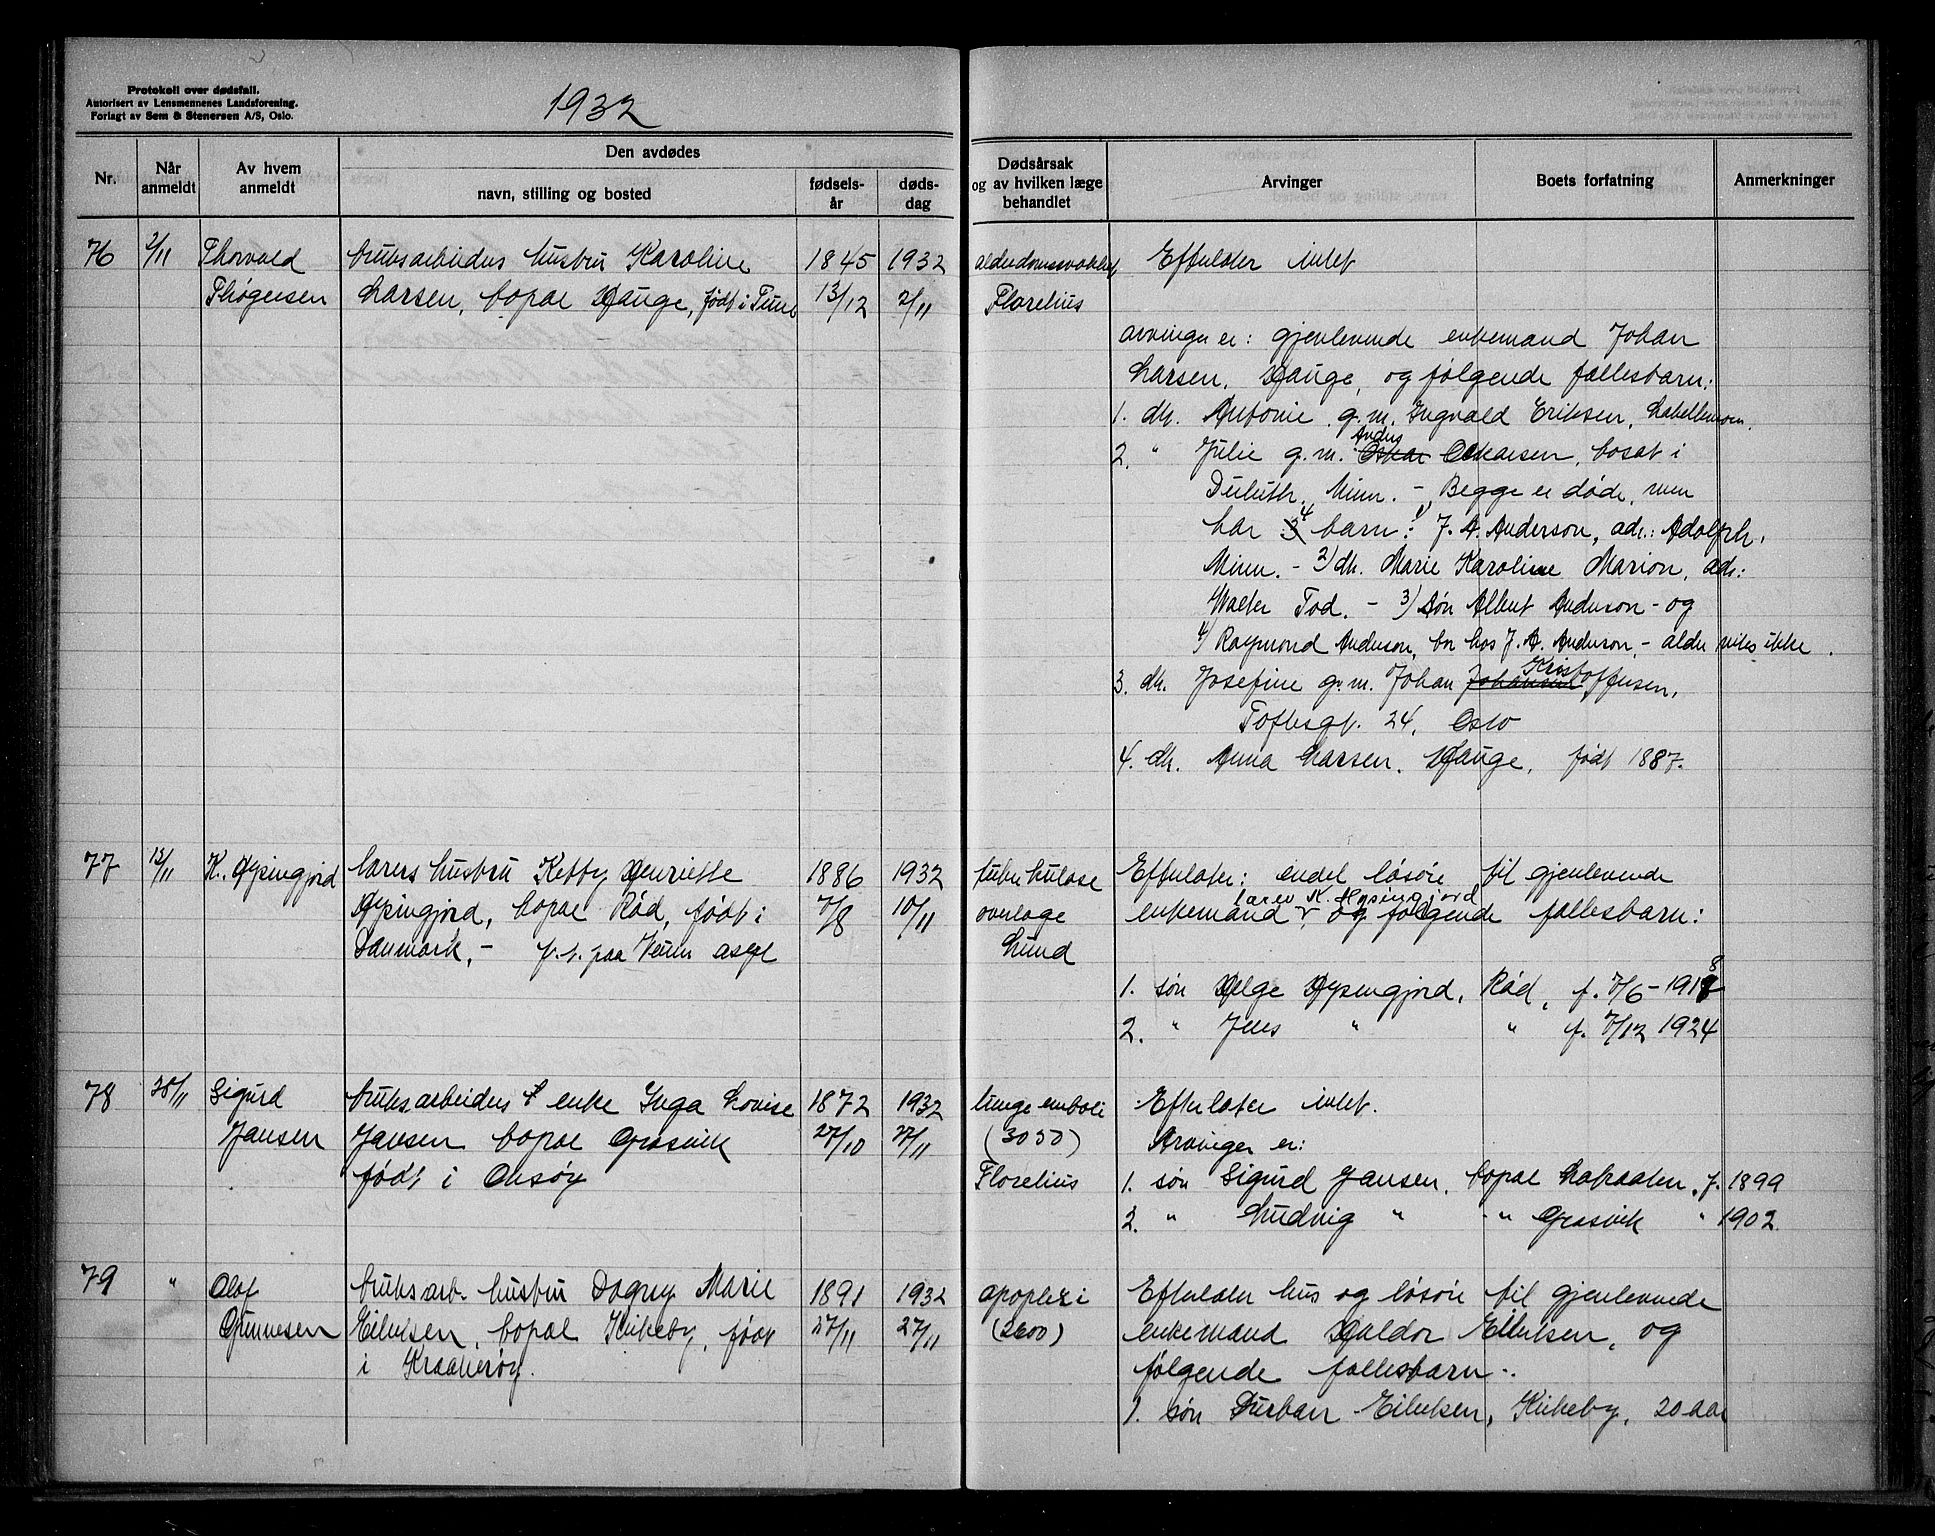 Protokoll over dødsfall.
Autorisert av Lensmennenes Landsforening.
Forlagt av Sem & Stenersen A/S, Oslo.
1932
Nr.
Når anmeldt
Av hvem anmeldt
Den avdødes
navn, stilling og bosted
fødselsår
dødsdag
Dødsårsak og av hvilken læge behandlet
Arvinger
Boets forfatning
Anmerkninger
76 2/11 Thorvald bruksarbeiders hustru Karoline 1845 1932 alderdomssvakhet Efterlater intet
Thøgersen Larsen, bopæl Hauge, født i Tune 13/12 2/11 Florelius
arvinger er: gjenlevende enkemand Johan
Larsen, Hauge, og følgende fællesbarn:
1. dtr. Antonie g.m. Ingvald Eriksen,
2. " Julie g.m. Oskar Anders Oskarsen, bosat i
Duluth, Minn. - Begge er døde, men
har 3 4 barn: 1) J. A. Anderson, adr.: Adolph,
Minn. - 2) dtr. Marie Karoline Marion, adr:
Walter Tod. - 3) søn Albert Anderson - og
4) Raymond Anderson, bor hos J. A. Anderson, - alder vites ikke.
3. dtr. Josefine g.m. Johan Johansen Kristoffersen,
Toftesgt. 24, Oslo
4. dtr. Anna Larsen, Hauge, født 1887.
77 12/11 K. Hysingjord lærers hustru Ketty Henriette 1886 1932 tuberkulose Efterlater: endel løsøre til gjenlevende
Hysingjord, bopæl Rød, født i 7/8 10/11 overlæge enkemand lærer K. Hysingjord, og følgende fællesbarn:
Danmark, - p.t. paa Veum asyl Lund
1. søn Helge Hysingjord, Rød, f. 7/6 - 1918
2. " Jens " " f. 7/12 1924
78 28/11 Sigurd bruksarbeiders enke Inga Lovise 1872 1932 lungeemboli Efterlater intet.
Jansen Jansen bopæl Gressvik 27/10 27/11 (3050) Arvinger er:
født i Onsøy Florelius 1. søn Sigurd Jansen, bopæl f. 1899
2. " Ludvig " " Gressvik " 1902
79 " Olaf bruksarb. hustru Dagny Marie 1891 1932 apoplexi Efterlater hus og løsøre til gjenlevende
Gunnesen Eilertsen, bopæl Kirkeby, født 27/11 27/11 (2600) enkemand Haldor Eilertsen, og
i Kraakerøy. følgende fællesbarn:
1. søn Durban Eilertsen, Kirkeby, 20 aar